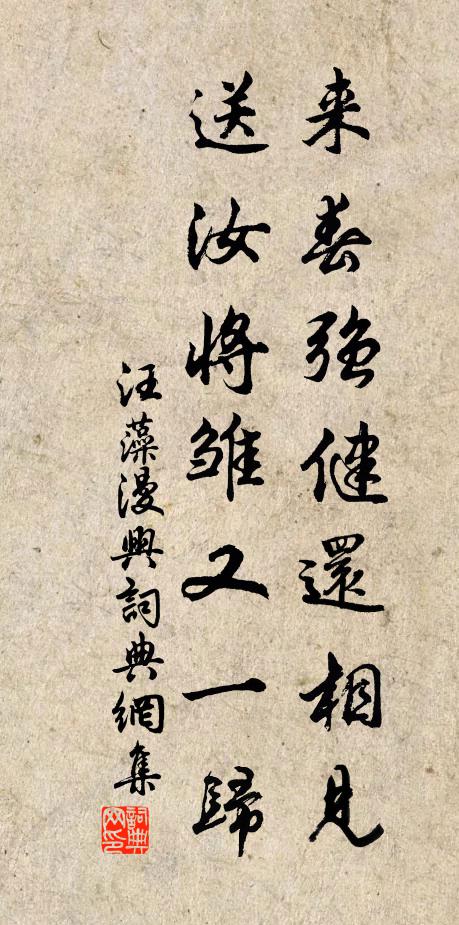 来春強健還相見
送汝將雛又一歸
汪藻漫興詞典網集
詞典网印